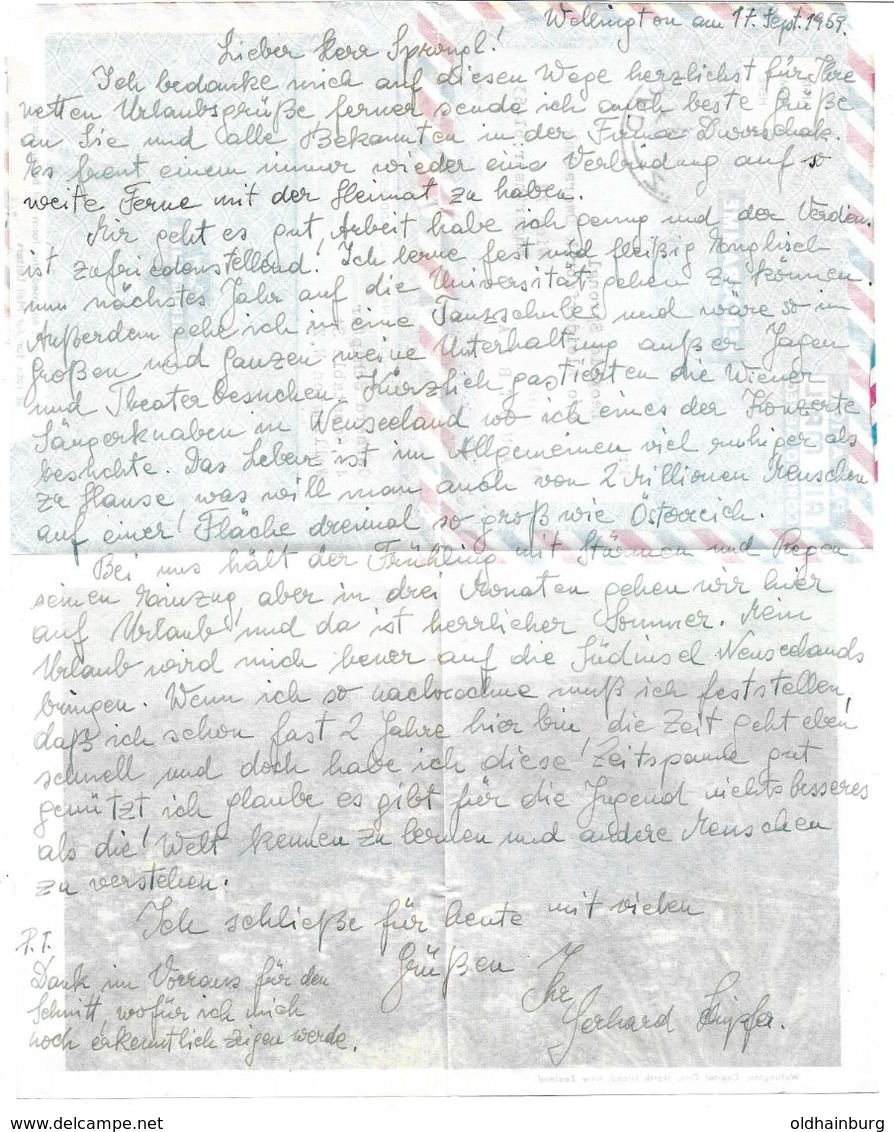 Wellington am 17. Sept. 1959.
Lieber Herr Sprongl!
Ich bedanke mich auf diesen Wege herzlichst für Ihre
netten Urlaubsgrüße, ferner sende ich auch beste Grüße
an Sie und alle Bekannten in der Firma Dworschak.
Es freut einem immer wieder eine Verbindung auf so
weite Ferne mit der Heimat zu haben.
Mir geht es gut, Arbeit habe ich genug und der Verdienst
ist zufriedenstellend. Ich lerne fest und fleißig Englisch
um nächstes Jahr auf die Universität gehen zu können.
Außerdem gehe ich in eine Tanzschule und wäre so im
Großen und Ganzen meine Unterhaltung außer Jagen
und Theater besuchen. Kürzlich gastierten die Wiener
Sängerknaben in Neuseeland wo ich eines der Konzerte
besuchte. Das Leben ist im Allgemeinen viel ruhiger als
zu Hause was will man auch von 2 Millionen Menschen
auf einer Fläche dreimal so groß wie Österreich.
Bei uns hält der Frühling mit Stürmen und Regen
seinen Einzug, aber in drei Monaten gehen wir hier
auf Urlaub und da ist herrlicher Sommer. Mein
Urlaub wird mich heuer auf die Südinsel Neuseelands
bringen. Wenn ich so nachrechne muß ich feststellen,
daß ich schon fast 2 Jahre hier bin, die Zeit geht eben
schnell und doch habe ich diese Zeitspanne gut
genützt ich glaube, es gibt für die Jugend nichts besseres
als die Welt kennen zu lernen und andere Menschen
zu verstehen.
Ich schließe für heute mit vielen
Grüßen
Ihr
Gerhard
P.T.
Dank im Vorraus für den
Schnitt, wofür ich mich
noch erkenntlich zeigen werde.
Wellington, Capital City, North Island, New Zealand
delcampe.net
oldhainburg